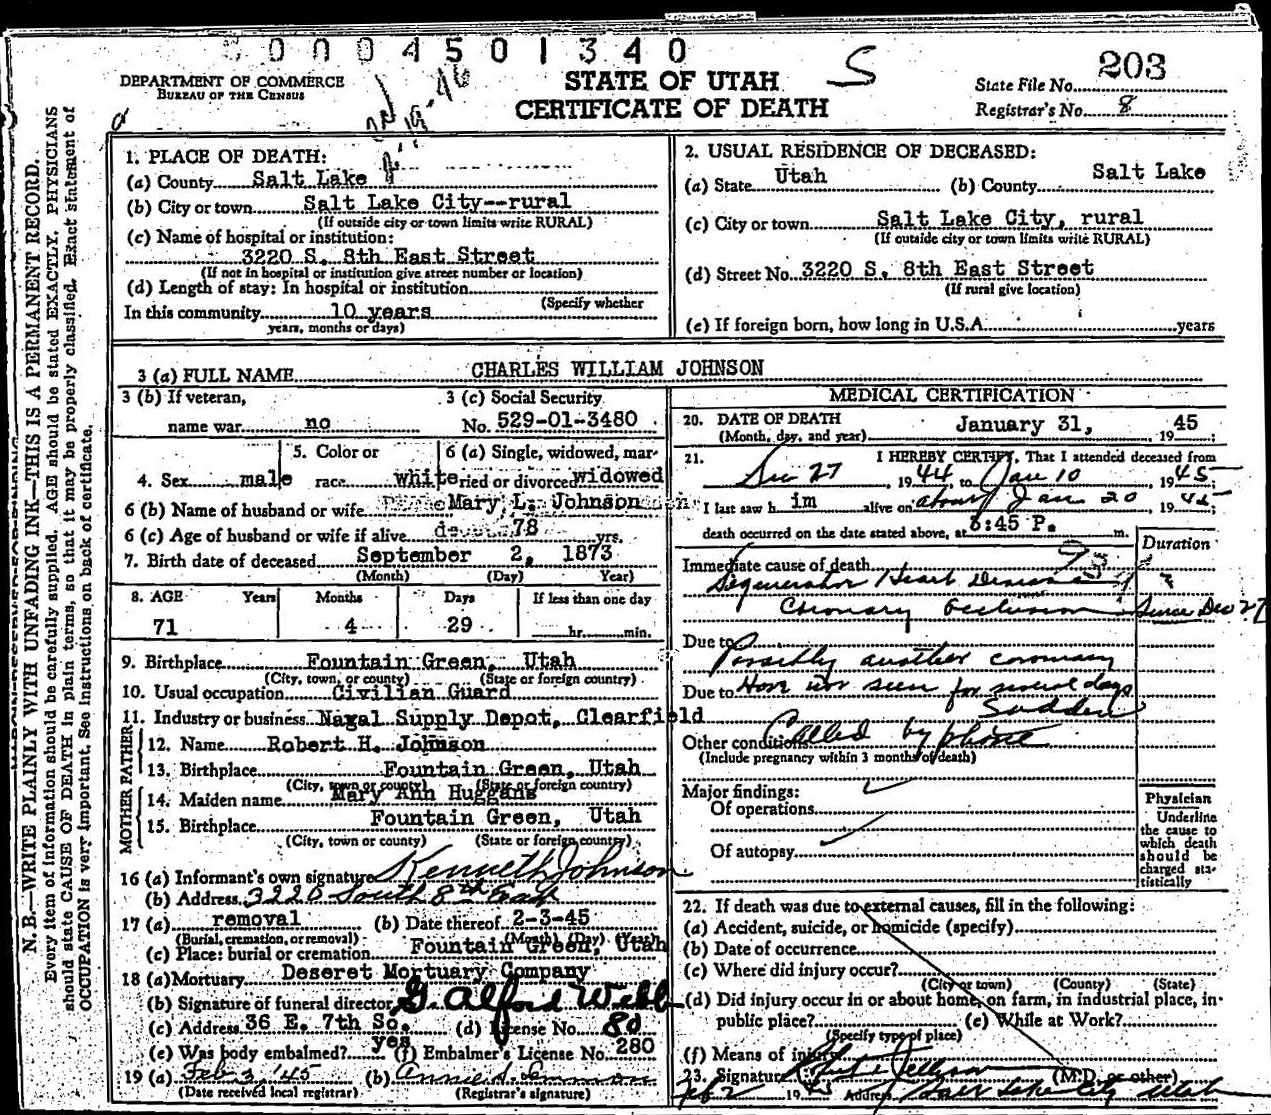 0004501340
DEPARTMENT OF COMMERCE
BUREAU OF THE CENSUS
STATE OF UTAH
CERTIFICATE OF DEATH
S
State File No. 203
Registrar's No. 8
N.B.—WRITE PLAINLY WITH UNFADING INK—THIS IS A PERMANENT RECORD.
Every item of information should be carefully supplied. AGE should be stated EXACTLY. PHYSICIANS
should state CAUSE OF DEATH in plain terms, so that it may be properly classified. Exact statement of
OCCUPATION is very important. See instructions on back of certificate.
1. PLACE OF DEATH:
(a) County Salt Lake
(b) City or town Salt Lake City--rural
(If outside city or town limits write RURAL)
(c) Name of hospital or institution:
3220 S. 8th East Street
(If not in hospital or institution give street number or location)
(d) Length of stay: In hospital or institution
(Specify whether
In this community 10 years
years, months or days)
2. USUAL RESIDENCE OF DECEASED:
(a) State Utah (b) County Salt Lake
(c) City or town Salt Lake City, rural
(If outside city or town limits write RURAL)
(d) Street No. 3220 S. 8th East Street
(If rural give location)
(e) If foreign born, how long in U.S.A. years
3 (a) FULL NAME CHARLES WILLIAM JOHNSON
3 (b) If veteran, 3 (c) Social Security
name war no No. 529-01-3480
5. Color or 6 (a) Single, widowed, mar-
4. Sex male race white ried or divorced widowed
6 (b) Name of husband or wife Mary L. Johnson
6 (c) Age of husband or wife if alive 78 yrs.
7. Birth date of deceased September 2, 1873
(Month) (Day) Year)
8. AGE Years Months Days If less than one day
71 4 29 hr. min.
9. Birthplace Fountain Green, Utah
(City, town, or county) (State or foreign country)
10. Usual occupation Civilian Guard
11. Industry or business Naval Supply Depot, Clearfield
FATHER
12. Name Robert H. Johnson
13. Birthplace Fountain Green, Utah
(City, town or county) (State or foreign country)
MOTHER
14. Maiden name Mary Ann Huggans
15. Birthplace Fountain Green, Utah
(City, town or county) (State or foreign country)
16 (a) Informant's own signature Kenneth Johnson
(b) Address 3220 South 8th East
17 (a) removal (b) Date thereof 2-3-45
(Burial, cremation, or removal) (Month) (Day) (Year)
(c) Place: burial or cremation Fountain Green, Utah
18 (a) Mortuary Deseret Mortuary Company
(b) Signature of funeral director G. Alford Webb
(c) Address 36 E. 7th So. (d) License No. 80
(e) Was body embalmed? yes (f) Embalmer's License No. 280
19 (a) Feb 3 '45 (b) Annie S.
(Date received local registrar) (Registrar's signature)
MEDICAL CERTIFICATION
20. DATE OF DEATH
(Month, day, and year) January 31, 1945;
21. I HEREBY CERTIFY, That I attended deceased from
Dec 27, 1944 to Jan 10 1945
I last saw him alive on about Jan 20 1945;
death occurred on the date stated above, at 8:45 P. m.
Duration
Immediate cause of death
Degenerator Heart Disease
Coronary Occlusion Since Dec 27
Due to
Possibly another coronary
Due to Have not seen for several days
Sudden
Other conditions Called by phone
(Include pregnancy within 3 months of death)
Major findings:
Of operations
Of autopsy
Physician
Underline
the cause to
which death
should be
charged sta-
tistically
22. If death was due to external causes, fill in the following:
(a) Accident, suicide, or homicide (specify)
(b) Date of occurrence
(c) Where did injury occur?
(City or town) (County) (State)
(d) Did injury occur in or about home, on farm, in industrial place, in-
public place? (e) While at Work?
(Specify type of place)
(f) Means of injury
23. Signature (M.D. or other)
Feb 2 1945 Address Salt Lake City Utah